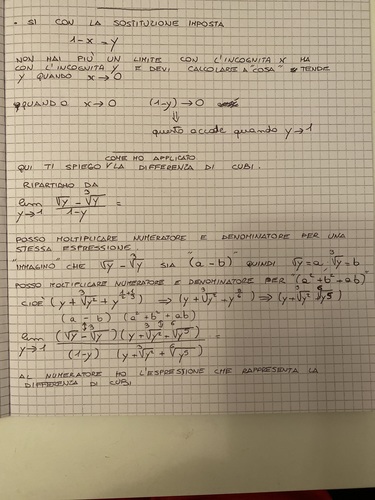 • SI CON LA SOSTITUZIONE IMPOSTA
1-x = y
NON HAI PIÙ UN LIMITE CON L'INCOGNITA X MA
CON L'INCOGNITA Y E DEVI CALCOLARE A "COSA" TENDE
Y QUANDO x→0
QUANDO x→0 (1-y)→0
⇓
questo accade quando y→1
COME HO APPLICATO
QUI TI SPIEGO LA DIFFERENZA DI CUBI.
RIPARTIAMO DA
lim √y - ∛y / 1-y =
y→1
POSSO MOLTIPLICARE NUMERATORE E DENOMINATORE PER UNA
STESSA ESPRESSIONE.
"IMMAGINO" CHE √y - ∛y SIA "(a-b)" QUINDI √y=a ∛y=b
POSSO MOLTIPLICARE NUMERATORE E DENOMINATORE PER "(a²+b²+ab)"
CIOÈ (y+∛y²+y^(1/2+1/3)) ⇒ (y+∛y²+y^(5/6)) ⇒ (y+∛y²+⁶√y⁵)
(a-b) (a²+b²+ab)
lim (√y-∛y)(y+∛y²+⁶√y⁵) / (1-y) (y+∛y²+⁶√y⁵) =
y→1
AL NUMERATORE HO L'ESPRESSIONE CHE RAPPRESENTA LA
DIFFERENZA DI CUBI